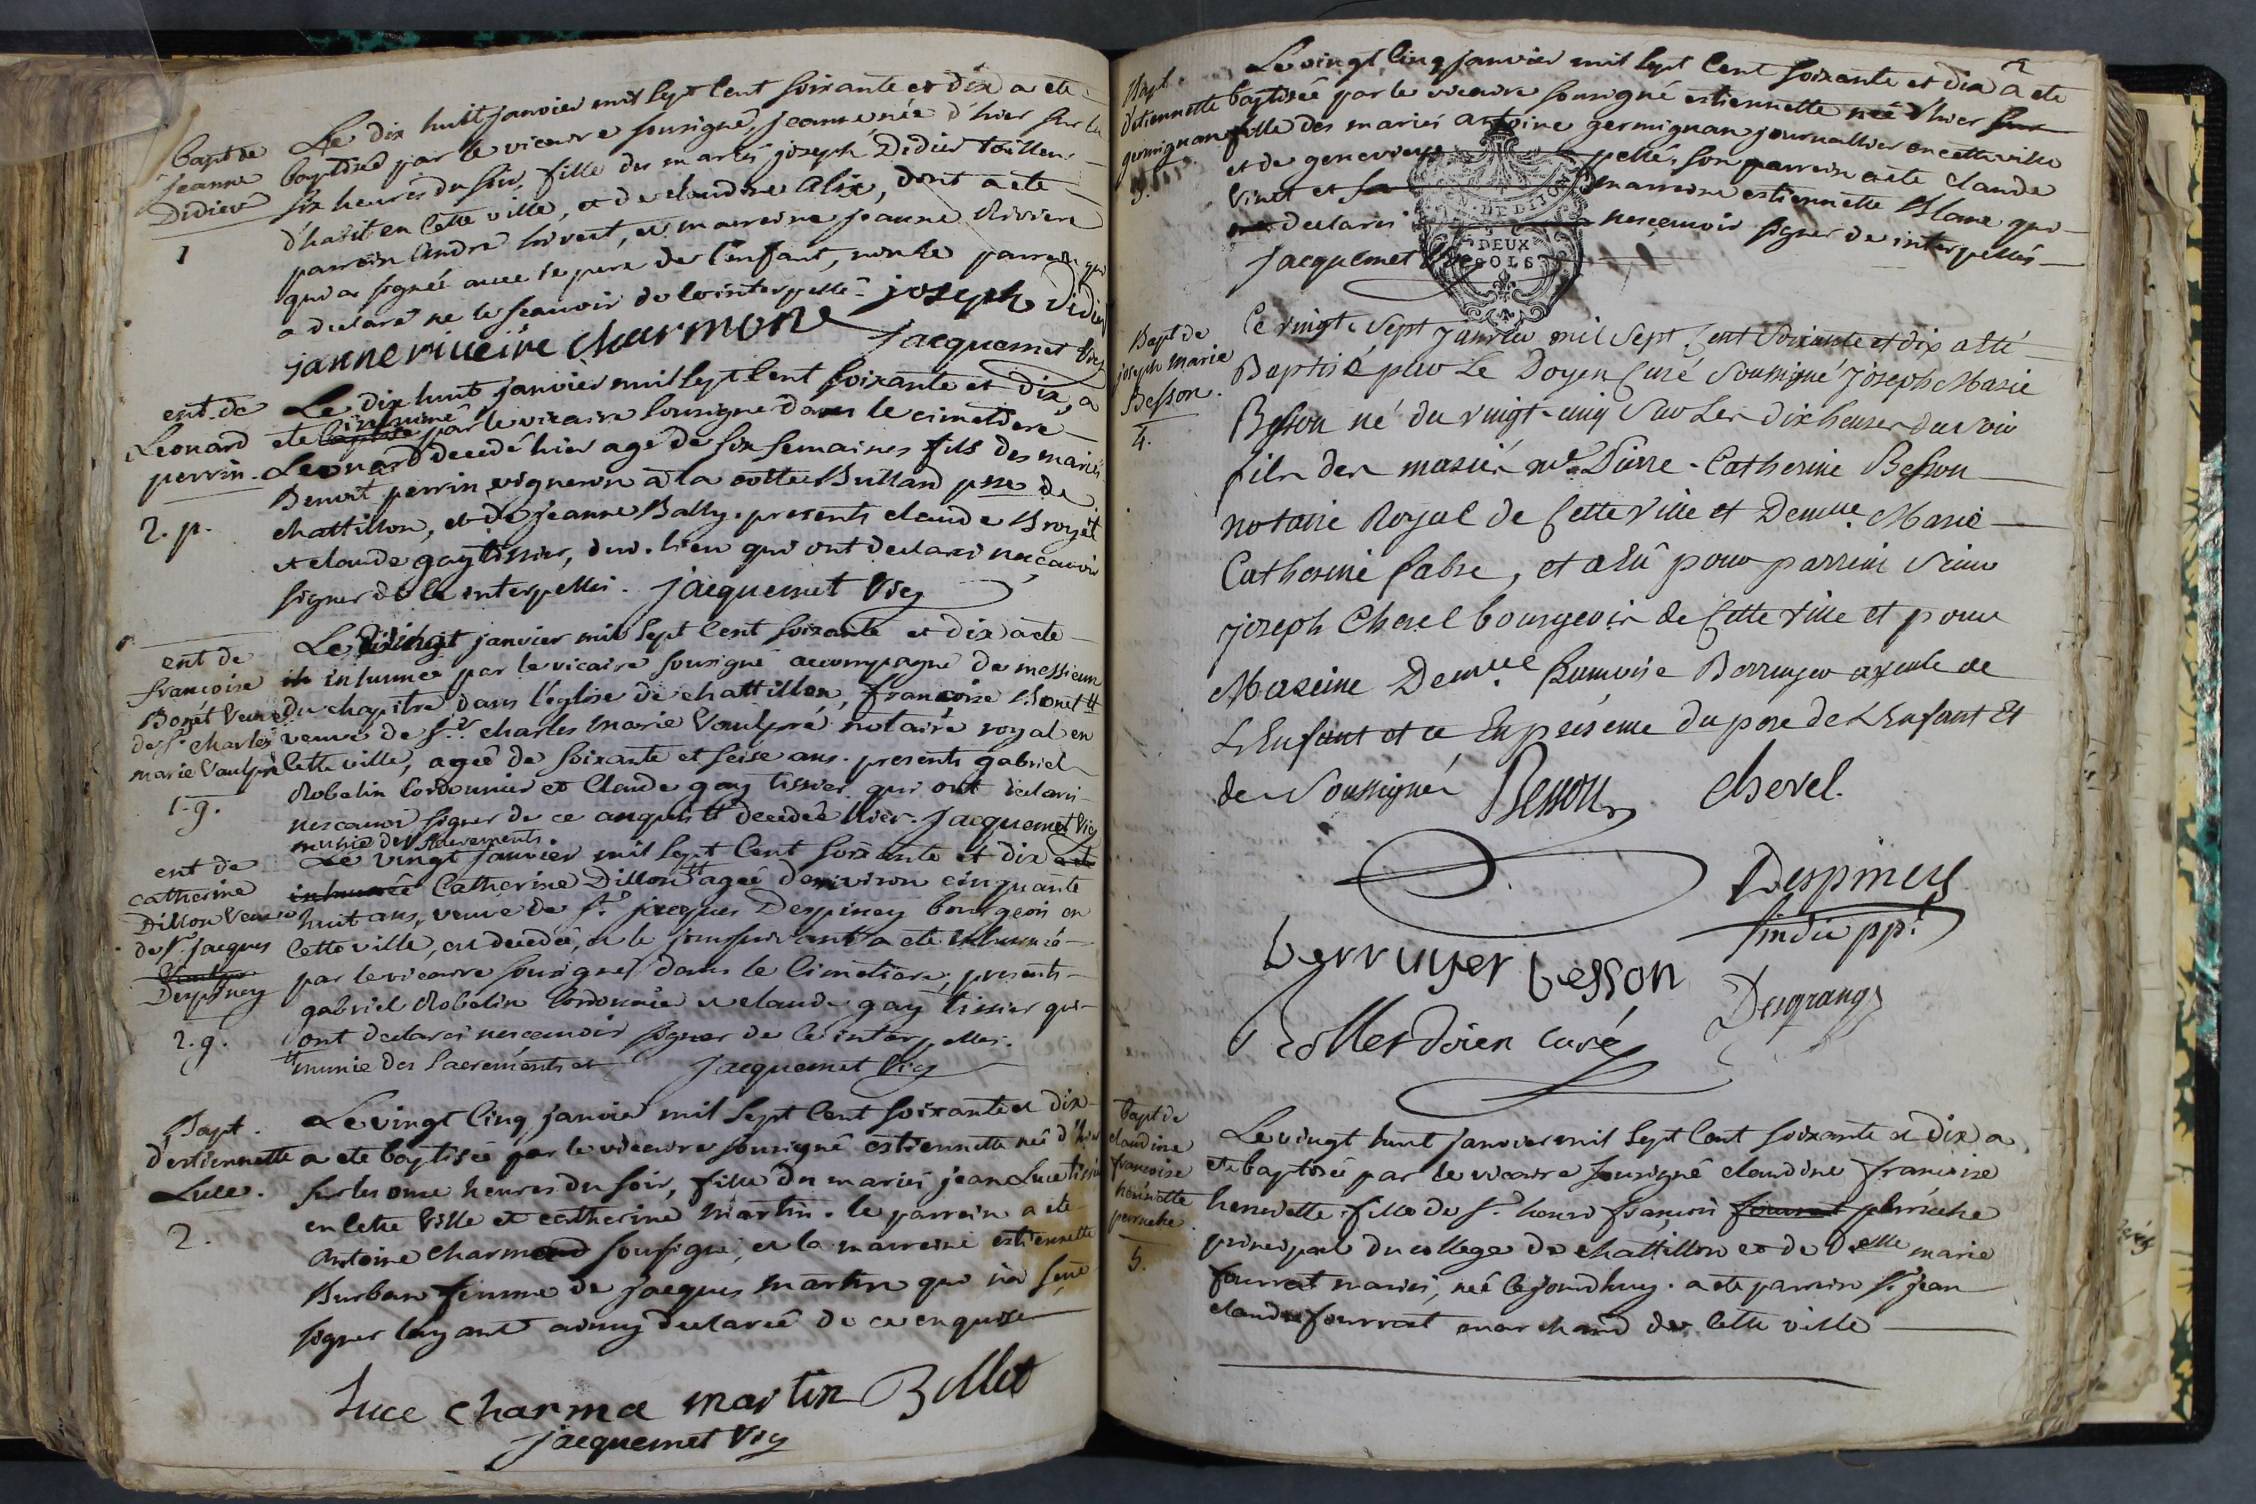 bapt de
jeanne
Didier
1
Le dix huit janvier mil sept cent soixante et dix a ete
baptisée par le vicaire sousigné, jeanne née d'hier sur les
six heures du soir, fille des mariés joseph Didier
d'habit en cette ville, et de claudine alix, dont a ete
parrain andré, et marreine jeanne Riviere
qui a signée avec le pere de l'enfant, non le parrain qui
a declaré ne le scavoir de ce interpellé. joseph didier
janne riveire charmon
jacquemet vic
ent. de
Leonard
perrin.
2. p.
Le dix huit janvier mil sept cent soixante et dix, a
ete baptisé inhumé par le vicaire sousigné dans le cimetiere
Leonard decedé hier agé de six semaines fils des mariés
Benoit perrin vigneron à la cotte Bulliand psse de
chattillon, et de jeanne Bally. presents claude Broyet
et claude gay tissier, dud. lieu qui ont declaré nescavoir
signer de ce interpellés. jacquemet Vic
ent de
francoise
Bonet Veuve
de sr charles
marie Vaulpré
1. g.
Le vingt janvier mil sept cent soixante et dix a ete
in inhumée par le vicaire sousigné accompagné de messieurs
du chapitre dans l'église de chattillon, francoise Bonet #
veuve de sr. charles marie Vaulpré notaire royal en
cette ville, agée de soixante et seise ans. presents gabriel
Robelin cordonnier et Claude gay tissier qui ont declaré
nescavoir signer de ce enquis # decedée hier. jacquemet Vic
munie des sacrements.
ent de
catherine
Dillon Veuve
de sr. jacques
Vaulpré
Despiney
2. g.
Le vingt janvier mil sept cent soixante et dix a ete
inhumée Catherine Dillon # agée denviron cinquante
huit ans, veuve de sr. jacques Despiney bourgeois en
cette ville, est decedée, et le jour suivant a ete inhumée
par le vicaire sousigné dans le cimetiere, presents
gabriel Robelin cordonnie et claude gay tissier qui
ont declarés nescavoir signer de ce interpellés.
# munie des sacrements et jacquemet Vic
Bapt.
d'estiennette
Luce.
2.
Le vingt cinq janvier mil sept cent soixante et dix
a ete baptisée par le vicaire sousigné estiennette née d'hier
sur les onse heures du soir, fille des mariés jean Luce tissier
en cette Ville et catherine martin. le parrein a ete
antoine charmond sousigné, et la marreine estiennette
Burban femme de jacques martin qui n'a sçue
signer layant ainsy declarée de ce enquise
Luce charma martin Billet
jacquemet Vic
2
Bapt.
d'etiennette
germignan
3.
Le vingt cinq janvier mil sept cent soixante et dix a ete
baptisée par le vicaire sousigné estiennette née d'hier sur
fille des mariés antoine germignan journallier en cette ville
et de genevieve pellé, son parrein a ete claude
Vinet et sa marreine estiennette Blanc qui
ont declarés nescavoir signer de interpellés
jacquemet Vic
DEUX
SOLS
Bapt de
joseph marie
Besson.
4.
Ce vingt-sept janvier mil sept cent soixante et dix a été
Baptisé par Le Doyen Curé soussigné joseph Marie
Besson né du vingt-cinq sur Les dix heures du soir
fils des mariés me Pierre-Catherine Besson
notaire Royal de Cette ville et Demlle. Marie
Catherine fabre, et a Eû pour parrein sieur
joseph Cherel bourgeois de Cette ville et pour
Mareine Demlle francoise Berruyer ayeule de
L'Enfant et ce En présence du pere de L'Enfant Et
des soussignés Besson Cherel.
Despiney
sindic ppl
berruyer besson
Desgranges
doien curé
bapt de
claudine
francoise
henriette
perruche.
5.
Le vingt huit janvier mil sept cent soixante et dix a
ete baptisée par le vicaire sousigné claudine francoise
henriette fille de sr. henri françois fourrat perruche
principal du college de chattillon et de Delle marie
fourrat mariés, née ce jourdhuy. a ete parrein sr. jean
claude fourrat marchand de cette ville